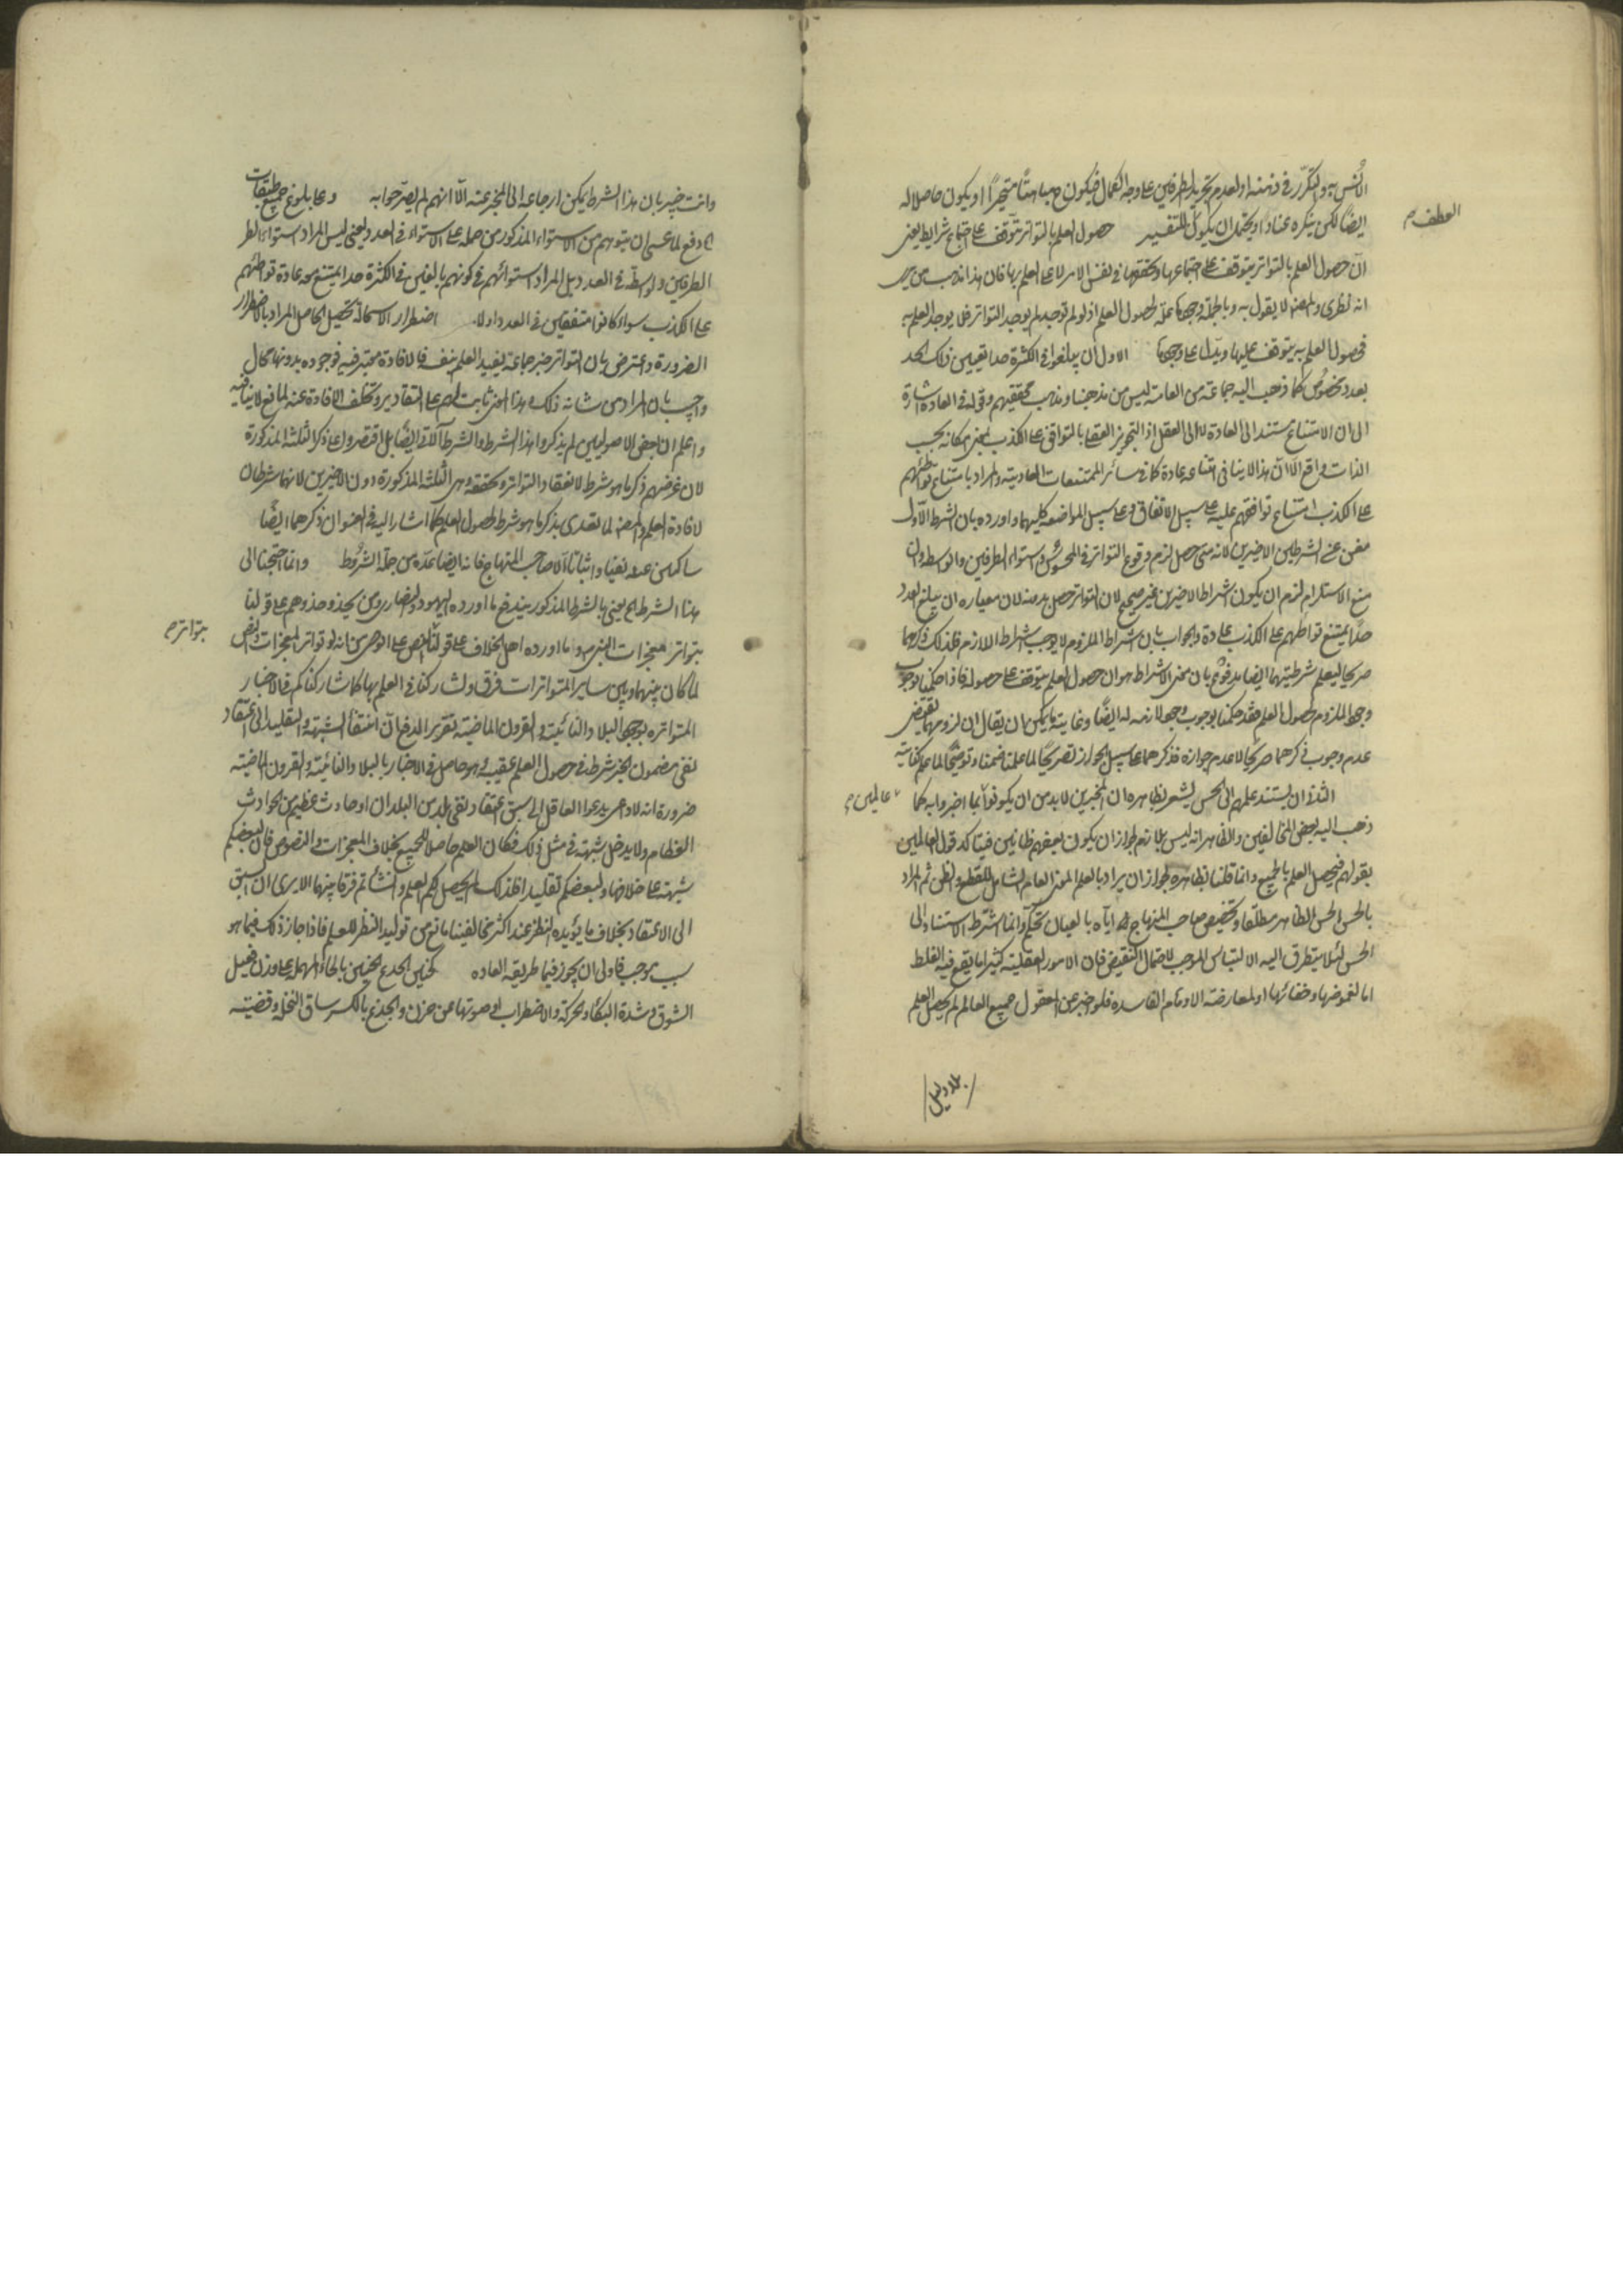 الانس به والتكرر في ذهنه او لعدم تجريد الطرفين على وجه الكمال فيكون مباهتا متحيرا او يكون حاصلا له
العطف
ايضا لكن ينكره عنادا او يحتمل ان يكون للتفسير حصول العلم بالتواتر يتوقف على اجتماع شرايط يعني
ان حصول العلم بالتواتر يتوقف على اجتماعها وتحققها في نفس الامر لا على العلم بها فان هذا مذهب من يرى
انه نظرى والمصنف لا يقول به وبالجملة وجودها علة لحصول العلم اذ لو لم توجد لم يوجد التواتر فلا يوجد العلم به
فحصول العلم به يتوقف عليها ويدل على وجودها الاول ان يبلغوا في الكثرة حدا تعيين ذلك الحد
بعدد مخصوص كما ذهب اليه جماعة من العامة ليس من مذهبنا ومذهب محققيهم وقوله في العادة اشارة
الى ان الامتناع مستند الى العادة لا الى العقل اذ التجويز العقلي بالتوافق على الكذب بمعنى امكانه بحسب
الذات واقع الا ان هذا لا ينافي امتناعه عادة كما في سائر الممتنعات العادية والمراد بامتناع تواطئهم
على الكذب امتناع توافقهم عليه على سبيل الاتفاق وعلى سبيل المواضعة كليهما واورد بان الشرط الاول
مغن عن الشرطين الاخيرين لانه متى حصل لزم وقوع التواتر في المحسوس واستواء الطرفين والوسط وان
منع الاستلزام لزم ان يكون اشتراط الاخيرين غير صحيح لان التواتر حصل بدونه لان معياره ان يبلغ العدد
حدا يمتنع تواطئهم على الكذب عادة والجواب بان اشتراط الملزوم لا يوجب اشتراط اللازم فلذلك ذكرهما
صريحا ليعلم شرطيتهما ايضا مدفوع بان معنى الاشتراط هو ان حصول العلم يتوقف على حصوله فاذا حكمنا بوجوب
وجود الملزوم لحصول العلم فقد حكمنا بوجوب وجود لازمه له ايضا وغاية ما يمكن ان يقال ان لزومهما يقتضي
عدم وجوب ذكرهما صريحا لا عدم جوازه فذكرهما على سبيل الجواز تصريحا لما علم ضمنا وتوضيحا لما علم كناية
الثاني ان يستند علمهم الى الحس يشعر بظاهره ان المخبرين لابد من ان يكونوا بما اخبروا به كما
عالمين
ذهب اليه بعض المخالفين والظاهر انه ليس بلازم لجواز ان يكون بعضهم ظانين فيتاكد قول العالمين
بقولهم فيحصل العلم بالجميع وانما قلنا بظاهره لجواز ان يراد بالعلم المعنى العام الشامل للقطع والظن ثم المراد
بالحس الحس الظاهر مطلقا وتخصيص صاحب المنهاج اياه بالعيان تحكم وانما اشترط الاستناد الى
الحس لئلا يتطرق اليه الالتباس الموجب لاحتمال النقيض فان الامور العقلية كثيرا ما يقع فيه الغلط
اما لغموضها وخفائها او لمعارضة الاوهام الفاسدة فلو اخبر عن المعقول جميع العالم لم يحصل العلم
وانت خبير بان هذا الشرط يمكن ارجاعه الى المخبر عنه الا انهم لم يصر جوابه وعلى بلوغ جميع طبقات
دفع لما عسى ان يتوهم من الاستواء المذكور من حمله على الاستواء في العدد يعني ليس المراد استواء
الطرفين والواسطة في العدد بل المراد استوائهم في كونهم بالغين في الكثرة حدا يمتنع معه عادة تواطئهم
على الكذب سواء كانوا متفقين في العدد او لا اضطرار الاستحالة تحصيل الحاصل المراد بالاضطرار
الضرورة واعترض بان التواتر خبر جماعة يفيد العلم بنفسه فالافادة معتبر فيه فوجوده بدونها محال
واجيب بان المراد من شانه ذلك وهذا المعنى ثابت لهم على التقادير وتخلف الافادة عنه لمانع لا ينافيه
واعلم ان بعض الاصوليين لم يذكروا هذا الشرط والشرط الآتي ايضا بل اقتصروا على ذكر الثلثة المذكورة
لان غرضهم ذكر ما هو شرط لانعقاد التواتر وتحققه وهي الثلثة المذكورة دون الاخيرين لانهما شرطان
لافادة العلم والمصنف لما تصدى بذكر ما هو شرط لحصول العلم كما اشار اليه في العنوان ذكرهما ايضا
ساكتين عنه نفيا واثباتا الا صاحب المنهاج فانه ايضا عده من جملة الشروط وانما احتجنا الى
هذا الشرط الخ يعني بالشرط المذكور يندفع ما اورده اليهود والنصارى ومن يحذو حذوهم على قولنا
بتواتر معجزات النبي ص وما اورده اهل الخلاف على قولنا النص على الوصى من انه لو تواتر المعجزات والنص
بتواتر
لما كان بينهما وبين ساير المتواترات فرق ولشاركنا في العلم بها كما شاركناكم في الاخبار
المتواترة بوجود البلاد النائية والقرون الماضية تقرير الدفع ان انتفاء الشبهة والتقليد الى اعتقاد
نفي مضمون الخبر شرط في حصول العلم عقيبه وهو حاصل في الاخبار بالبلاد النائية والقرون الماضية
ضرورة انه لا داعي يدعوا العاقل الى سبق اعتقاد نفي بلد من البلدان او حادث عظيم من الحوادث
العظام ولا يدخل شبهة في مثل ذلك فكان العلم حاصلا للجميع بخلاف المعجزات والنصوص فان لبعضكم
شبهة على خلافها ولبعضكم تقليدا فلذلك لم يحصل لكم العلم وانشأتم فرقا بينهما الا يرى ان السبق
الى الاعتقاد بخلاف ما يؤيده النظر عند اكثر مخالفينا مانع من توليد النظر للعلم فاذا جاز ذلك فيما هو
سبب موجب فاولى ان يجوز فيما طريقه العادة كحنين الجذع الحنين بالحاء المهملة على وزن فعيل
الشوق وشدة البكاء والحركة والاضطراب وصوتها عن حزن والجذع بالكسر ساق النخلة وقضيته